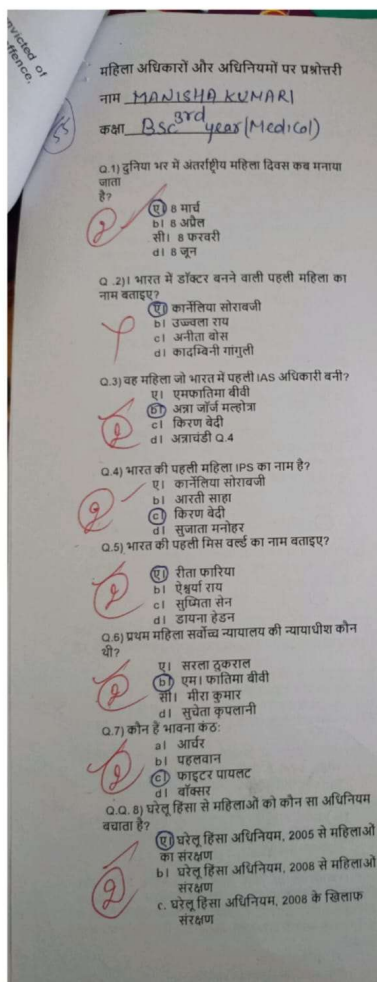 nvicted of
ffence,
महिला अधिकारों और अधिनियमों पर प्रश्नोत्तरी
नाम MANISHA KUMARI
कक्षा BSc 3rd year (Medical)
Q.1) दुनिया भर में अंतर्राष्ट्रीय महिला दिवस कब मनाया
जाता
है?
ए। 8 मार्च
b। 8 अप्रैल
सी। 8 फरवरी
d। 8 जून
2
Q .2)। भारत में डॉक्टर बनने वाली पहली महिला का
नाम बताइए?
ए। कार्नेलिया सोराबजी
b। उज्ज्वला राय
c। अनीता बोस
d। कादम्बिनी गांगुली
Q.3) वह महिला जो भारत में पहली IAS अधिकारी बनी?
ए। एमफातिमा बीवी
b। अन्ना जॉर्ज मल्होत्रा
c। किरण बेदी
d। अन्नाचंडी Q.4
2
Q.4) भारत की पहली महिला IPS का नाम है?
ए। कार्नेलिया सोराबजी
b। आरती साहा
c। किरण बेदी
d। सुजाता मनोहर
2
Q.5) भारत की पहली मिस वर्ल्ड का नाम बताइए?
ए। रीता फारिया
b। ऐश्वर्या राय
c। सुष्मिता सेन
d। डायना हेडन
2
Q.6) प्रथम महिला सर्वोच्च न्यायालय की न्यायाधीश कौन
थी?
ए। सरला ठुकराल
b। एम। फातिमा बीवी
सी। मीरा कुमार
d। सुचेता कृपलानी
2
Q.7) कौन हैं भावना कंठ:
a। आर्चर
b। पहलवान
c। फाइटर पायलट
d। बॉक्सर
2
Q.Q. 8) घरेलू हिंसा से महिलाओं को कौन सा अधिनियम
बचाता है?
ए। घरेलू हिंसा अधिनियम, 2005 से महिलाओं
का संरक्षण
b। घरेलू हिंसा अधिनियम, 2008 से महिलाओं
संरक्षण
c. घरेलू हिंसा अधिनियम, 2008 के खिलाफ
संरक्षण
2